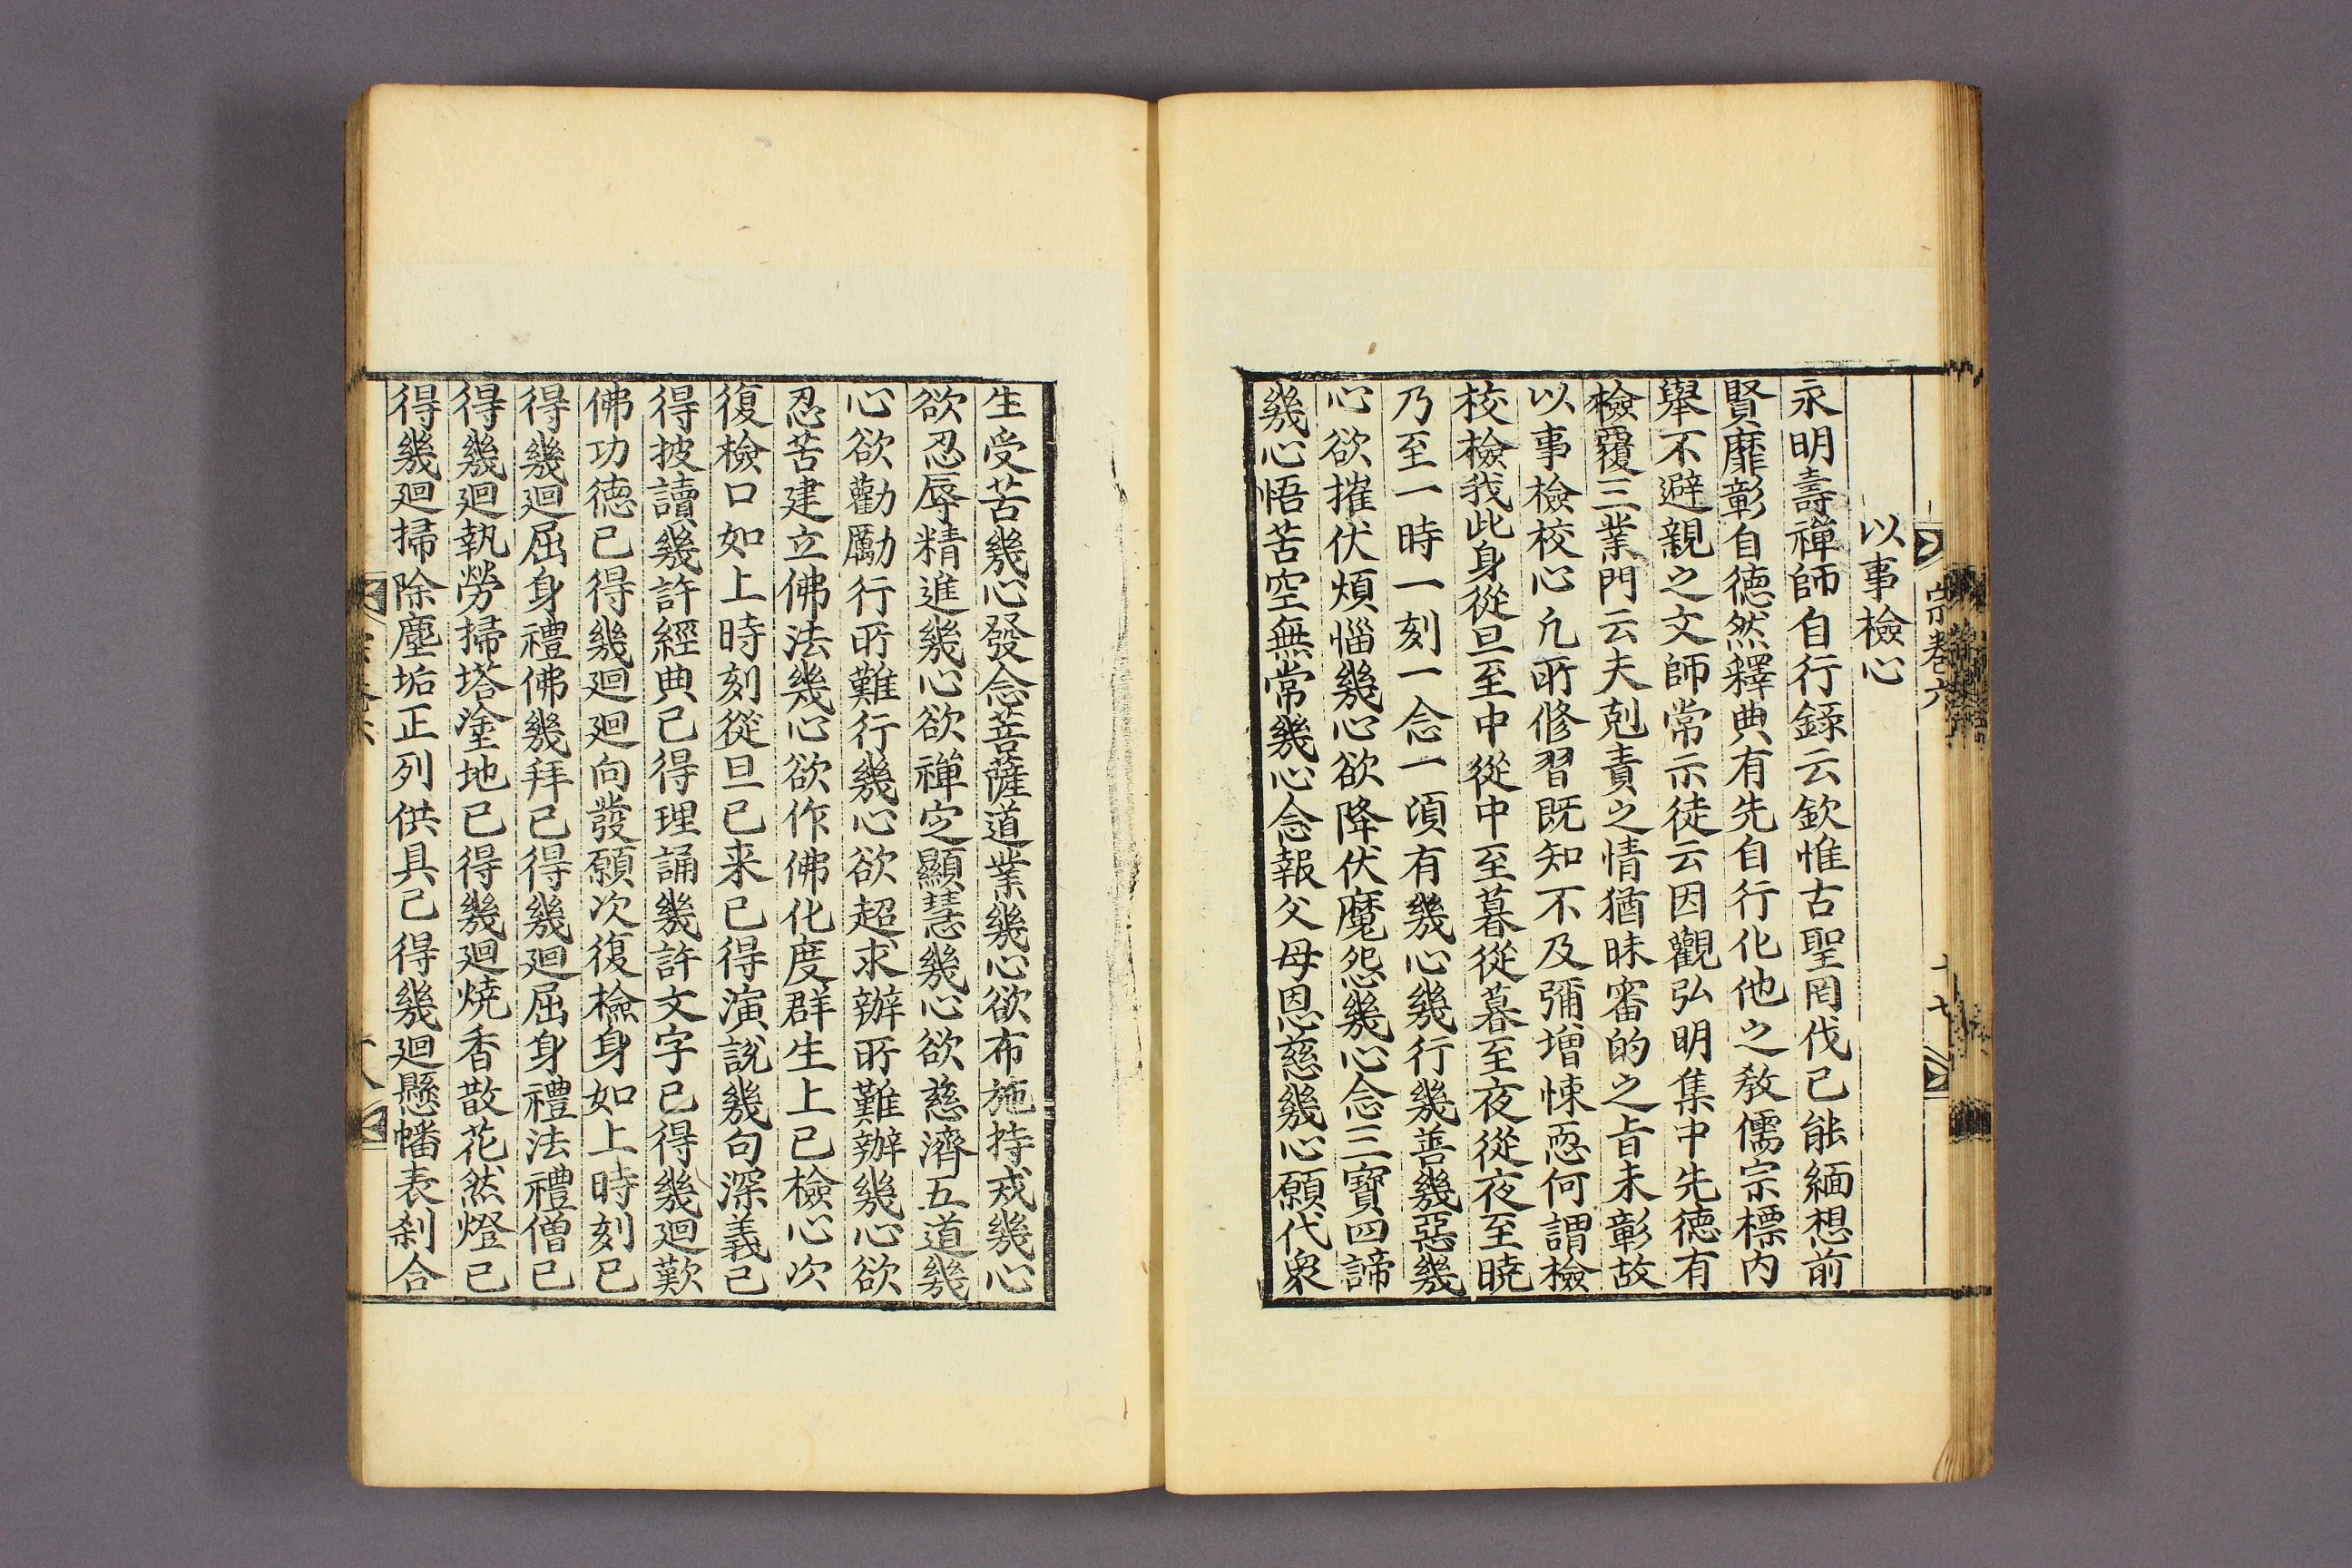 宗卷六
十七
以事檢心
永明壽禪師自行錄云欽惟古聖罔伐己能緬想前
賢靡彰自德然釋典有先自行化他之教儒宗標内
舉不避親之文師常示徒云因觀弘明集中先德有
檢覆三業門云夫剋責之情猶昧審的之旨未彰故
以事檢校心凢所修習既知不及彌增悚恧何謂檢
校檢我此身從旦至中從中至暮從暮至夜從夜至曉
乃至一時一刻一念一湏有幾心幾行幾善幾惡幾
心欲摧伏煩惱幾心欲降伏魔怨幾心念三寶四諦
幾心悟苦空無常幾心念報父母恩慈幾心願代衆
生受苦幾心發念菩薩道業幾心欲布施持戒幾心
欲忍辱精進幾心欲禪定顯慧幾心欲慈濟五道幾
心欲勸勵行所難行幾心欲超求辦所難辦幾心欲
忍苦建立佛法幾心欲作佛化度群生上已檢心次
復檢口如上時刻從旦已來已得演說幾句深義已
得披讀幾許經典已得理誦幾許文字已得幾廻歎
佛功德已得幾廻廻向發願次復檢身如上時刻已
得幾廻屈身禮佛幾拜已得幾廻屈身禮法禮僧已
得幾廻執勞掃塔塗地已得幾廻燒香散花然燈已
得幾廻掃除塵垢正列供具已得幾廻懸幡表刹合